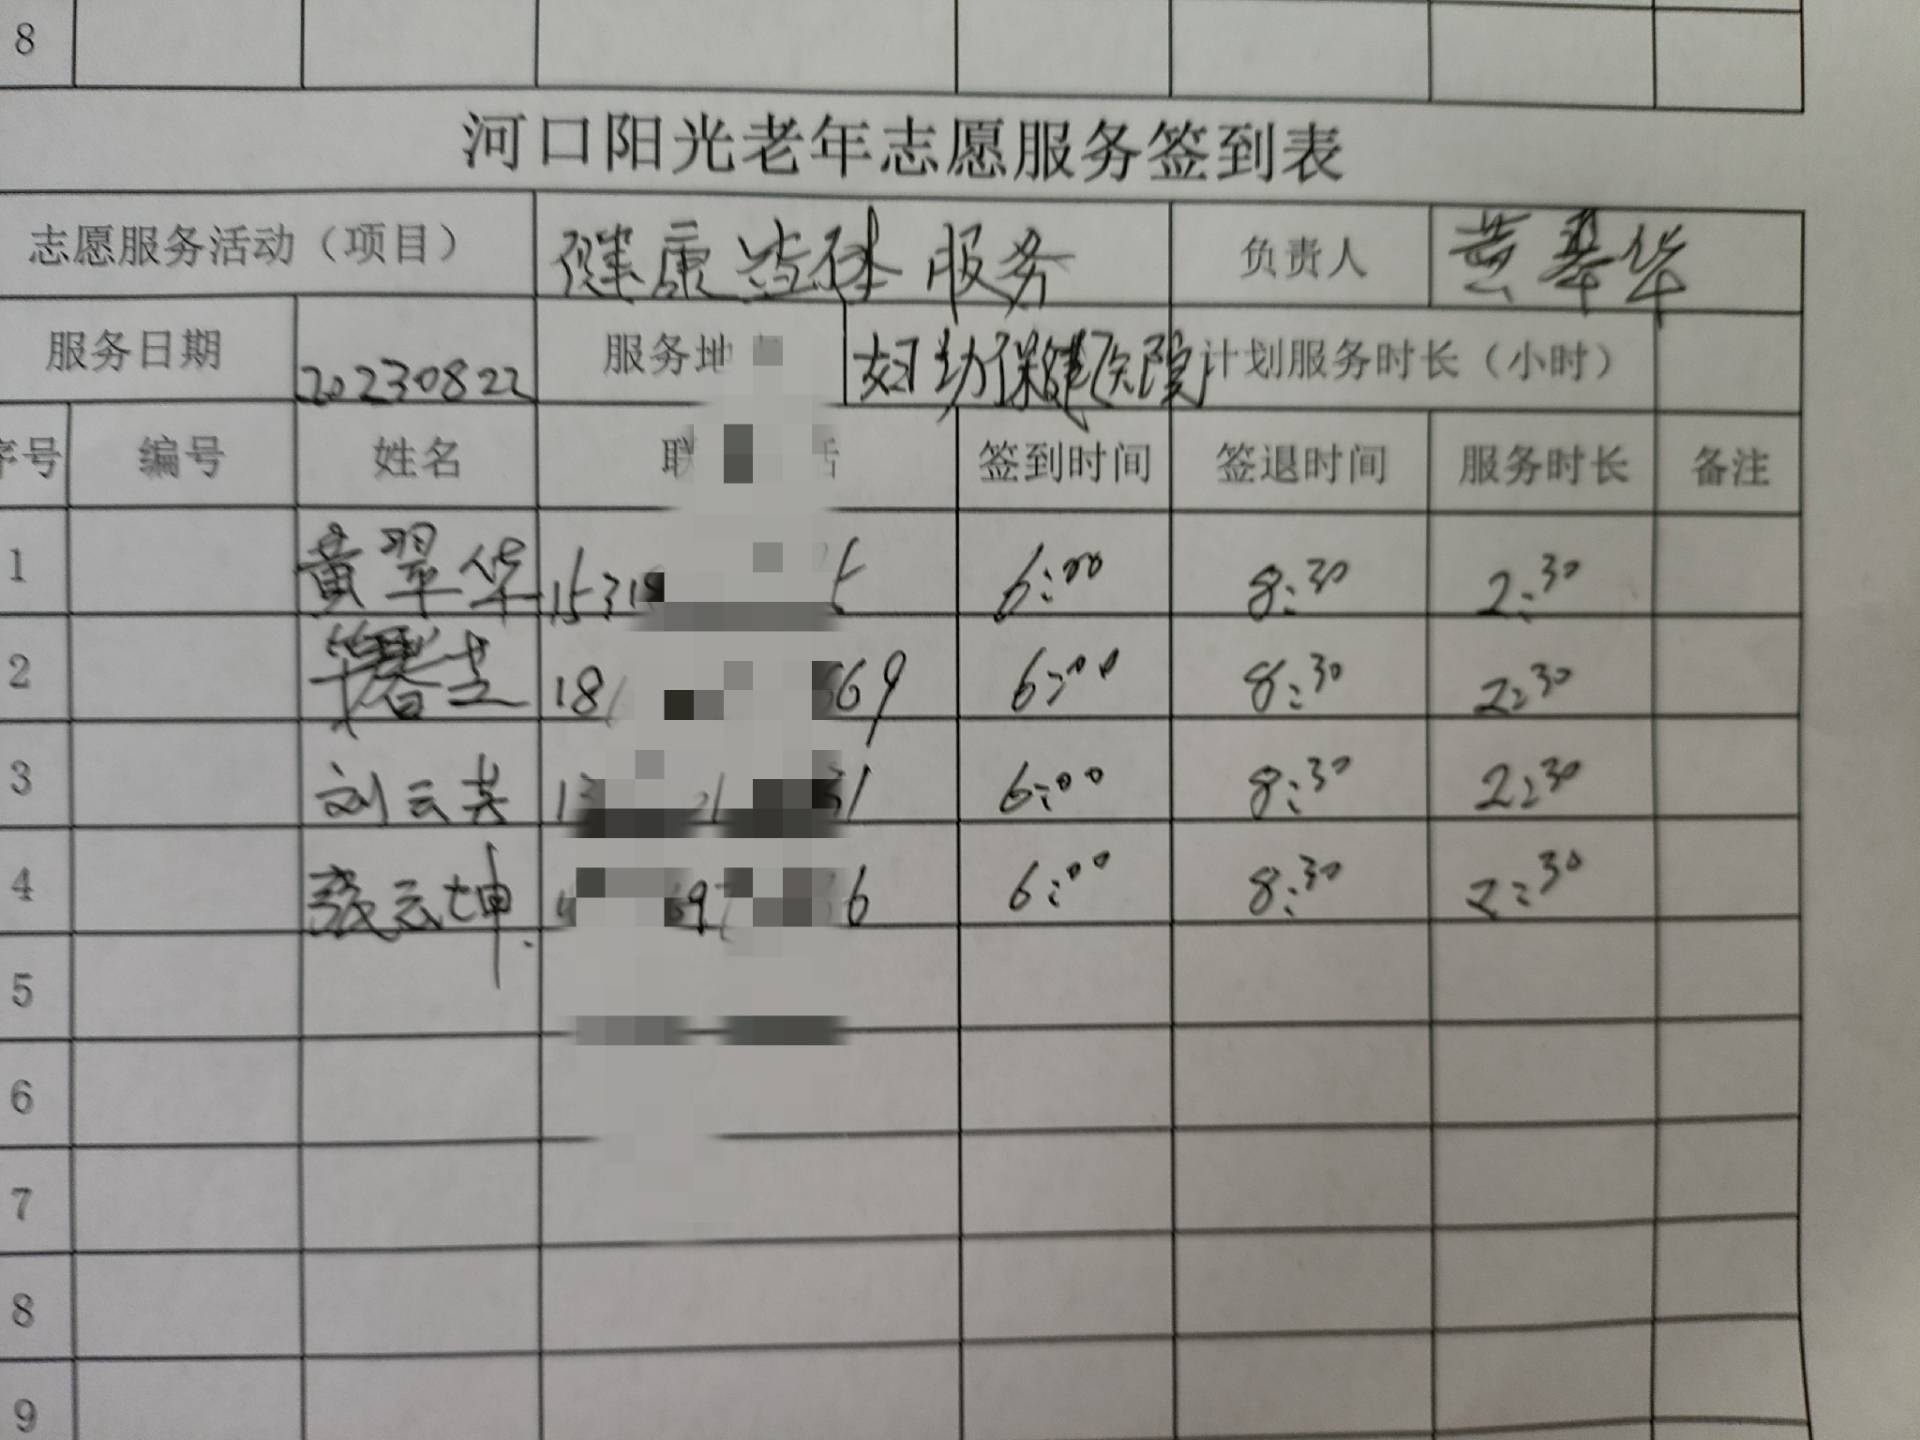 8
河口阳光老年志愿服务签到表
志愿服务活动（项目） 健康查体服务 负责人 黄翠华
服务日期 20230822 服务地 妇幼保健医院 计划服务时长（小时）
序号 编号 姓名 联 话 签到时间 签退时间 服务时长 备注
1 黄翠华 1531 5 6:00 8:30 2:30
2 18 669 6:00 8:30 2:30
3 刘云芸 13 21 31 6:00 8:30 2:30
4 张云坤 697 6 6:00 8:30 2:30
5
6
7
8
9